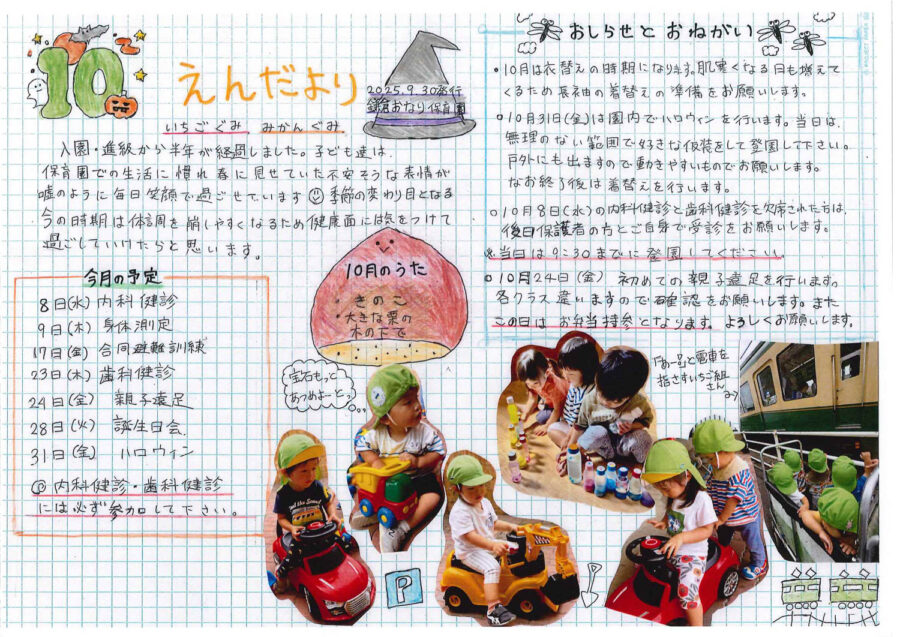 10
えんだより
2025.9.30発行
鎌倉おなり保育園
いちごぐみ みかんぐみ
入園・進級から半年が経過しました。子ども達は、
保育園での生活に慣れ春に見せていた不安そうな表情が
嘘のように毎日笑顔で過ごせています 季節の変わり目となる
今の時期は体調を崩しやすくなるため健康面には気をつけて
過ごしていけたらと思います。
今月の予定
8日(水) 内科健診
9日(木) 身体測定
17日(金) 合同避難訓練
23日(木) 歯科健診
24日(金) 親子遠足
28日(火) 誕生日会
31日(金) ハロウィン
◎内科健診・歯科健診
には必ず参加して下さい。
10月のうた
・きのこ
・大きな栗の
木の下で
おしらせとおねがい
・10月は衣替えの時期になります。肌寒くなる日も増えて
くるため長袖の着替えの準備をお願いします。
・10月31日(金)は園内でハロウィンを行います。当日は、
無理のない範囲で好きな仮装をして登園して下さい。
戸外にも出ますので動きやすいものでお願いします。
なお終了後は着替えを行います。
・10月8日(水)の内科健診と歯科健診を欠席された方は、
後日保護者の方とご自身で受診をお願いします。
※当日は9:30までに登園してください。
・10月24日(金) 初めての親子遠足を行います。
各クラス違いますので確認をお願いします。また
この日はお弁当持参となります。よろしくお願いします。
宝石もっと
あつめよーとっ
「あー!」と電車を
指さすいちご組
さん
P